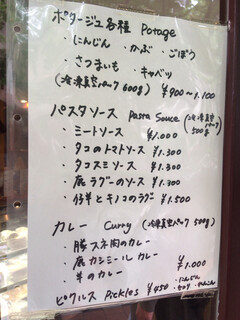 ポタージュ各種 Potage
・にんじん ・かぶ ・ごぼう
・さつまいも ・キャベツ
(冷凍真空パック 600g) ¥900〜1.100
パスタソース Pasta Sauce (冷凍真空パック 500g)
・ミートソース ¥1.000
・タコのトマトソース ¥1.300
・タコスミソース ¥1.300
・鹿ラグーのソース ¥1.300
・仔羊とキノコのラグ ¥1.500
カレー Curry (冷凍真空パック 500g)
・豚スネ肉のカレー
・鹿カシミールカレー
・羊のカレー ¥1.000
ピクルス Pickles ¥450 ・にんじん
・セロリ ・れんこん